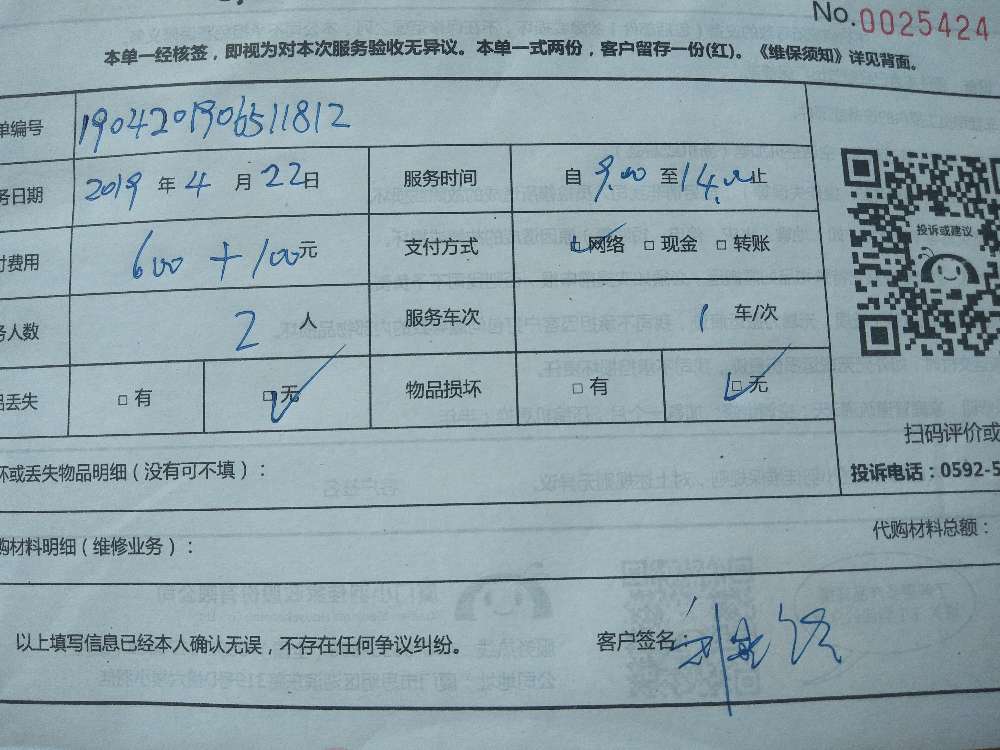 No.0025424
本单一经核签，即视为对本次服务验收无异议。本单一式两份，客户留存一份(红)。《维保须知》详见背面。
单编号 1904201906511812
务日期 2019 年 4 月 22 日 服务时间 自 9.00 至 14.00 止
付费用 600 + 100 元 支付方式 网络 □ 现金 □ 转账
务人数 2 人 服务车次 1 车/次
品丢失 □ 有 □ 无 物品损坏 □ 有 □ 无
投诉或建议
扫码评价或
投诉电话：0592-5
坏或丢失物品明细（没有可不填）：
代购材料总额：
购材料明细（维修业务）：
以上填写信息已经本人确认无误，不存在任何争议纠纷。 客户签名：